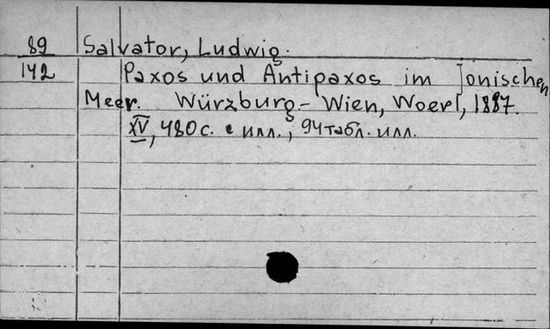 89 Salvator, Ludwig.
142 Paxos und Antipaxos im Jonischen
Meer. Würzburg - Wien, Woerl, 1887.
XV, 480 с. с илл., 94 табл. илл.